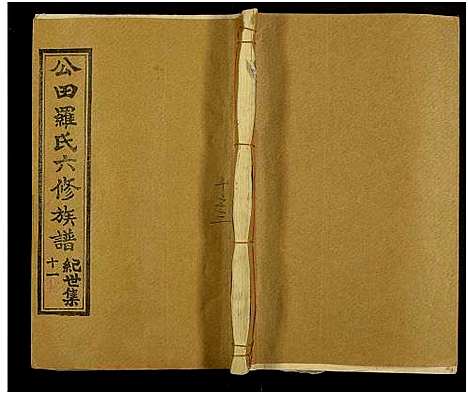 公田羅氏六修族譜
紀世集
十一
十之三